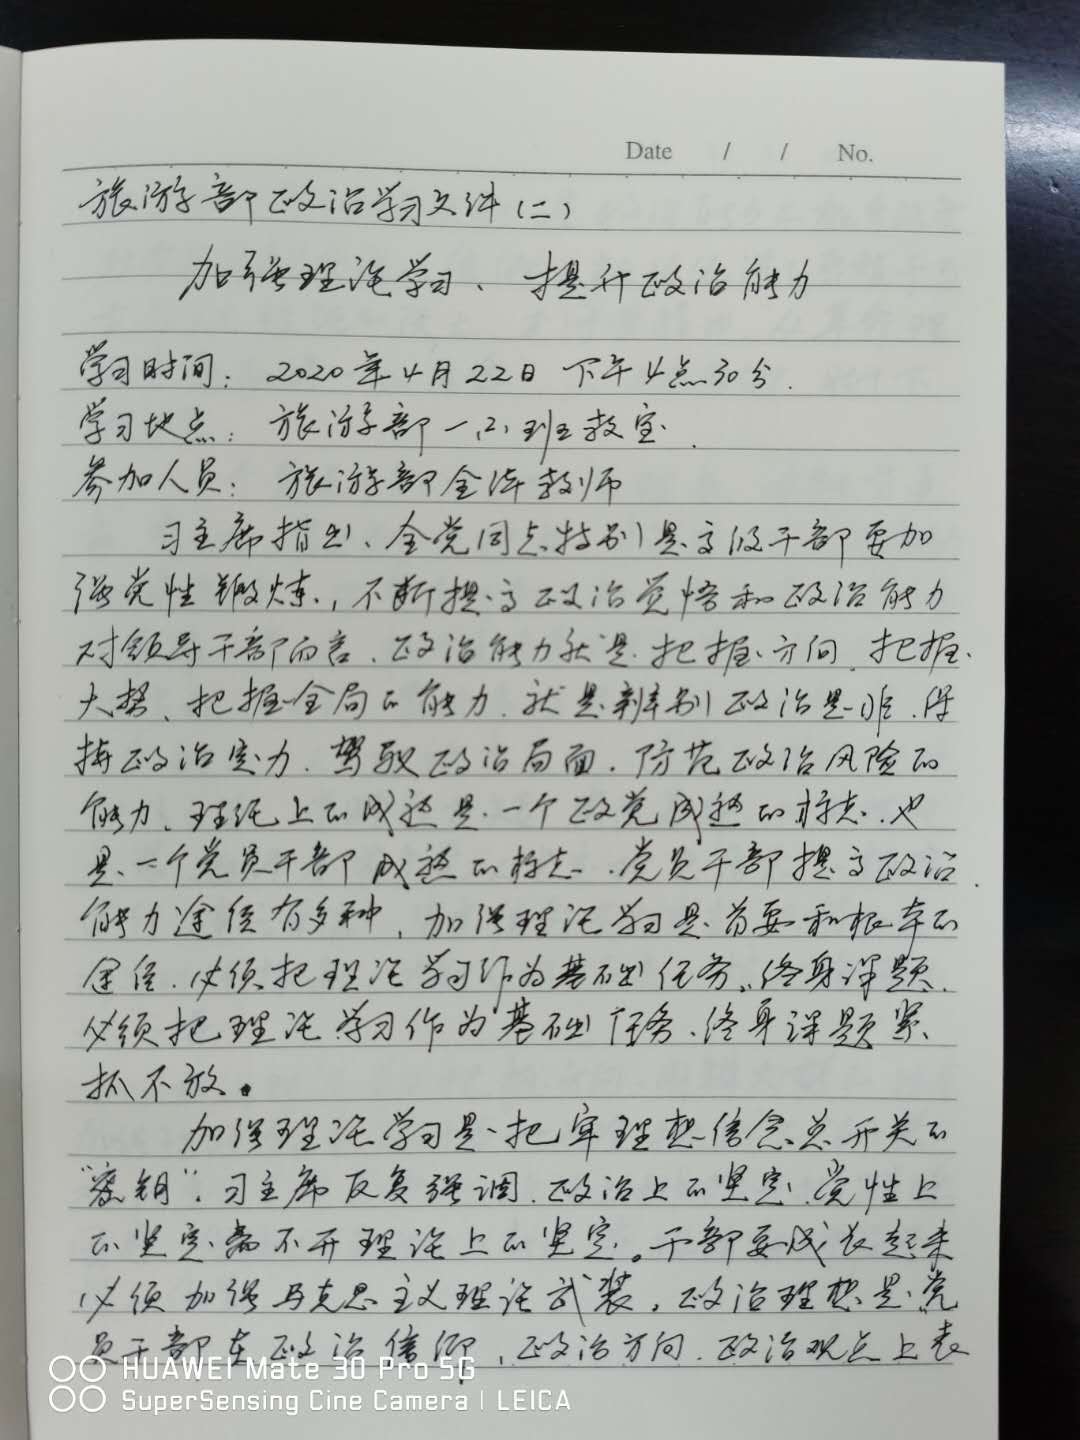 Date / / No.
旅游部政治学习文件(二)
加强理论学习、提升政治能力
学习时间: 2020年4月22日 下午4点30分.
学习地点: 旅游部一(2)班教室.
参加人员: 旅游部全体教师
习主席指出、全党同志特别是高级干部要加
强党性锻炼、,不断提高政治觉悟和政治能力
对领导干部而言、政治能力就是把握方向、把握
大势、把握全局的能力、就是辨别政治是非、保
持政治定力、驾驭政治局面、防范政治风险的
能力、理论上的成熟是一个政党成熟的标志、也
是一个党员干部成熟的标志、党员干部提高政治
能力途径有多种,加强理论学习是首要和根本的
途径、必须把理论学习作为基础任务、终身课题、
必须把理论学习作为基础任务、终身课题紧
抓不放。
加强理论学习是把牢理想信念总开关的
“密钥”。习主席反复强调、政治上的坚定、党性上
的坚定离不开理论上的坚定。干部要成长起来
必须加强马克思主义理论武装。政治理想是党
员干部在政治信仰、政治方向、政治观点上表
HUAWEI Mate 30 Pro 5G
SuperSensing Cine Camera | LEICA